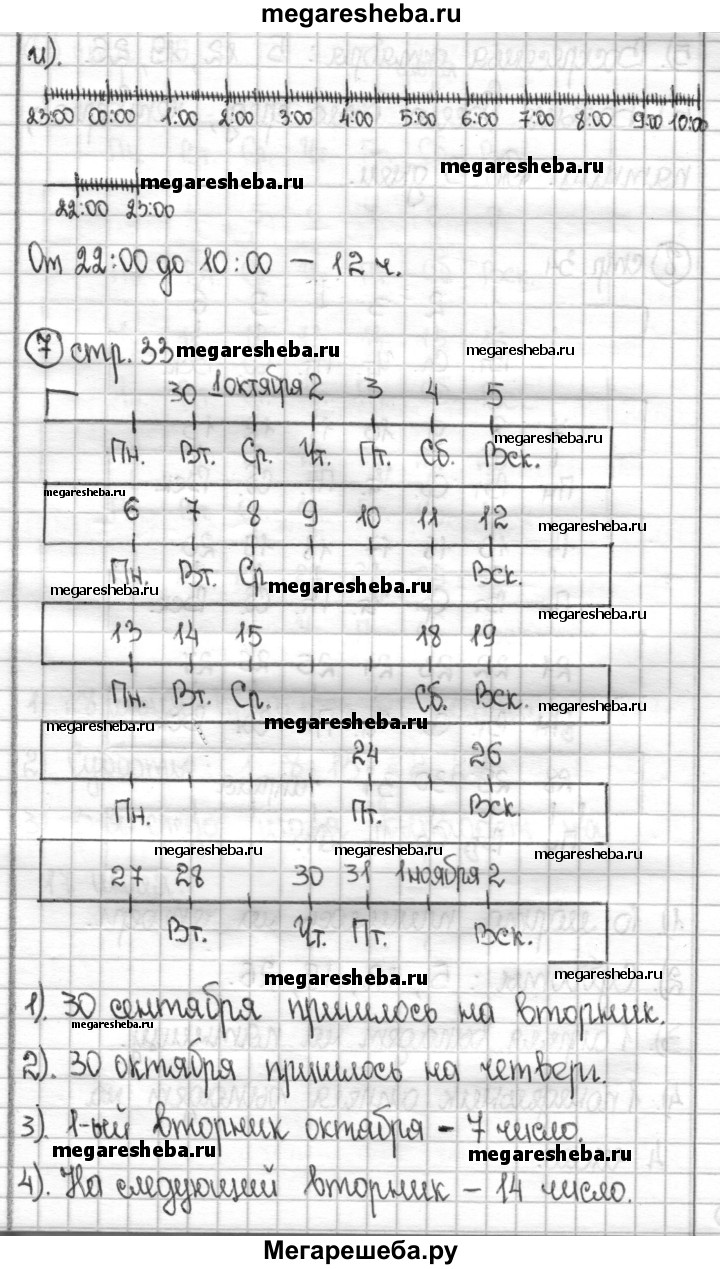 megaresheba.ru
и).
23:00 00:00 1:00 2:00 3:00 4:00 5:00 6:00 7:00 8:00 9:00 10:00
megaresheba.ru
megaresheba.ru
22:00 23:00
От 22:00 до 10:00 – 12 ч.
7 стр. 33 megaresheba.ru megaresheba.ru
30 1 октября 2 3 4 5
megaresheba.ru
Пн. Вт. Ср. Чт. Пт. Сб. Вск.
megaresheba.ru
6 7 8 9 10 11 12 megaresheba.ru
Пн. Вт. Ср. megaresheba.ru Вск.
megaresheba.ru
megaresheba.ru
13 14 15 18 19
Пн. Вт. Ср. Сб. Вск. megaresheba.ru
megaresheba.ru megaresheba.ru megaresheba.ru
24 26
Пн. Пт. Вск.
megaresheba.ru megaresheba.ru megaresheba.ru
27 28 30 31 1 ноября 2
Вт. Чт. Пт. Вск.
megaresheba.ru megaresheba.ru
1). 30 сентября пришлось на вторник.
megaresheba.ru
2). 30 октября пришлось на четверг.
3). 1-ый вторник октября – 7 число.
megaresheba.ru megaresheba.ru
4). На следующий вторник – 14 число.
Мегарешеба.ру